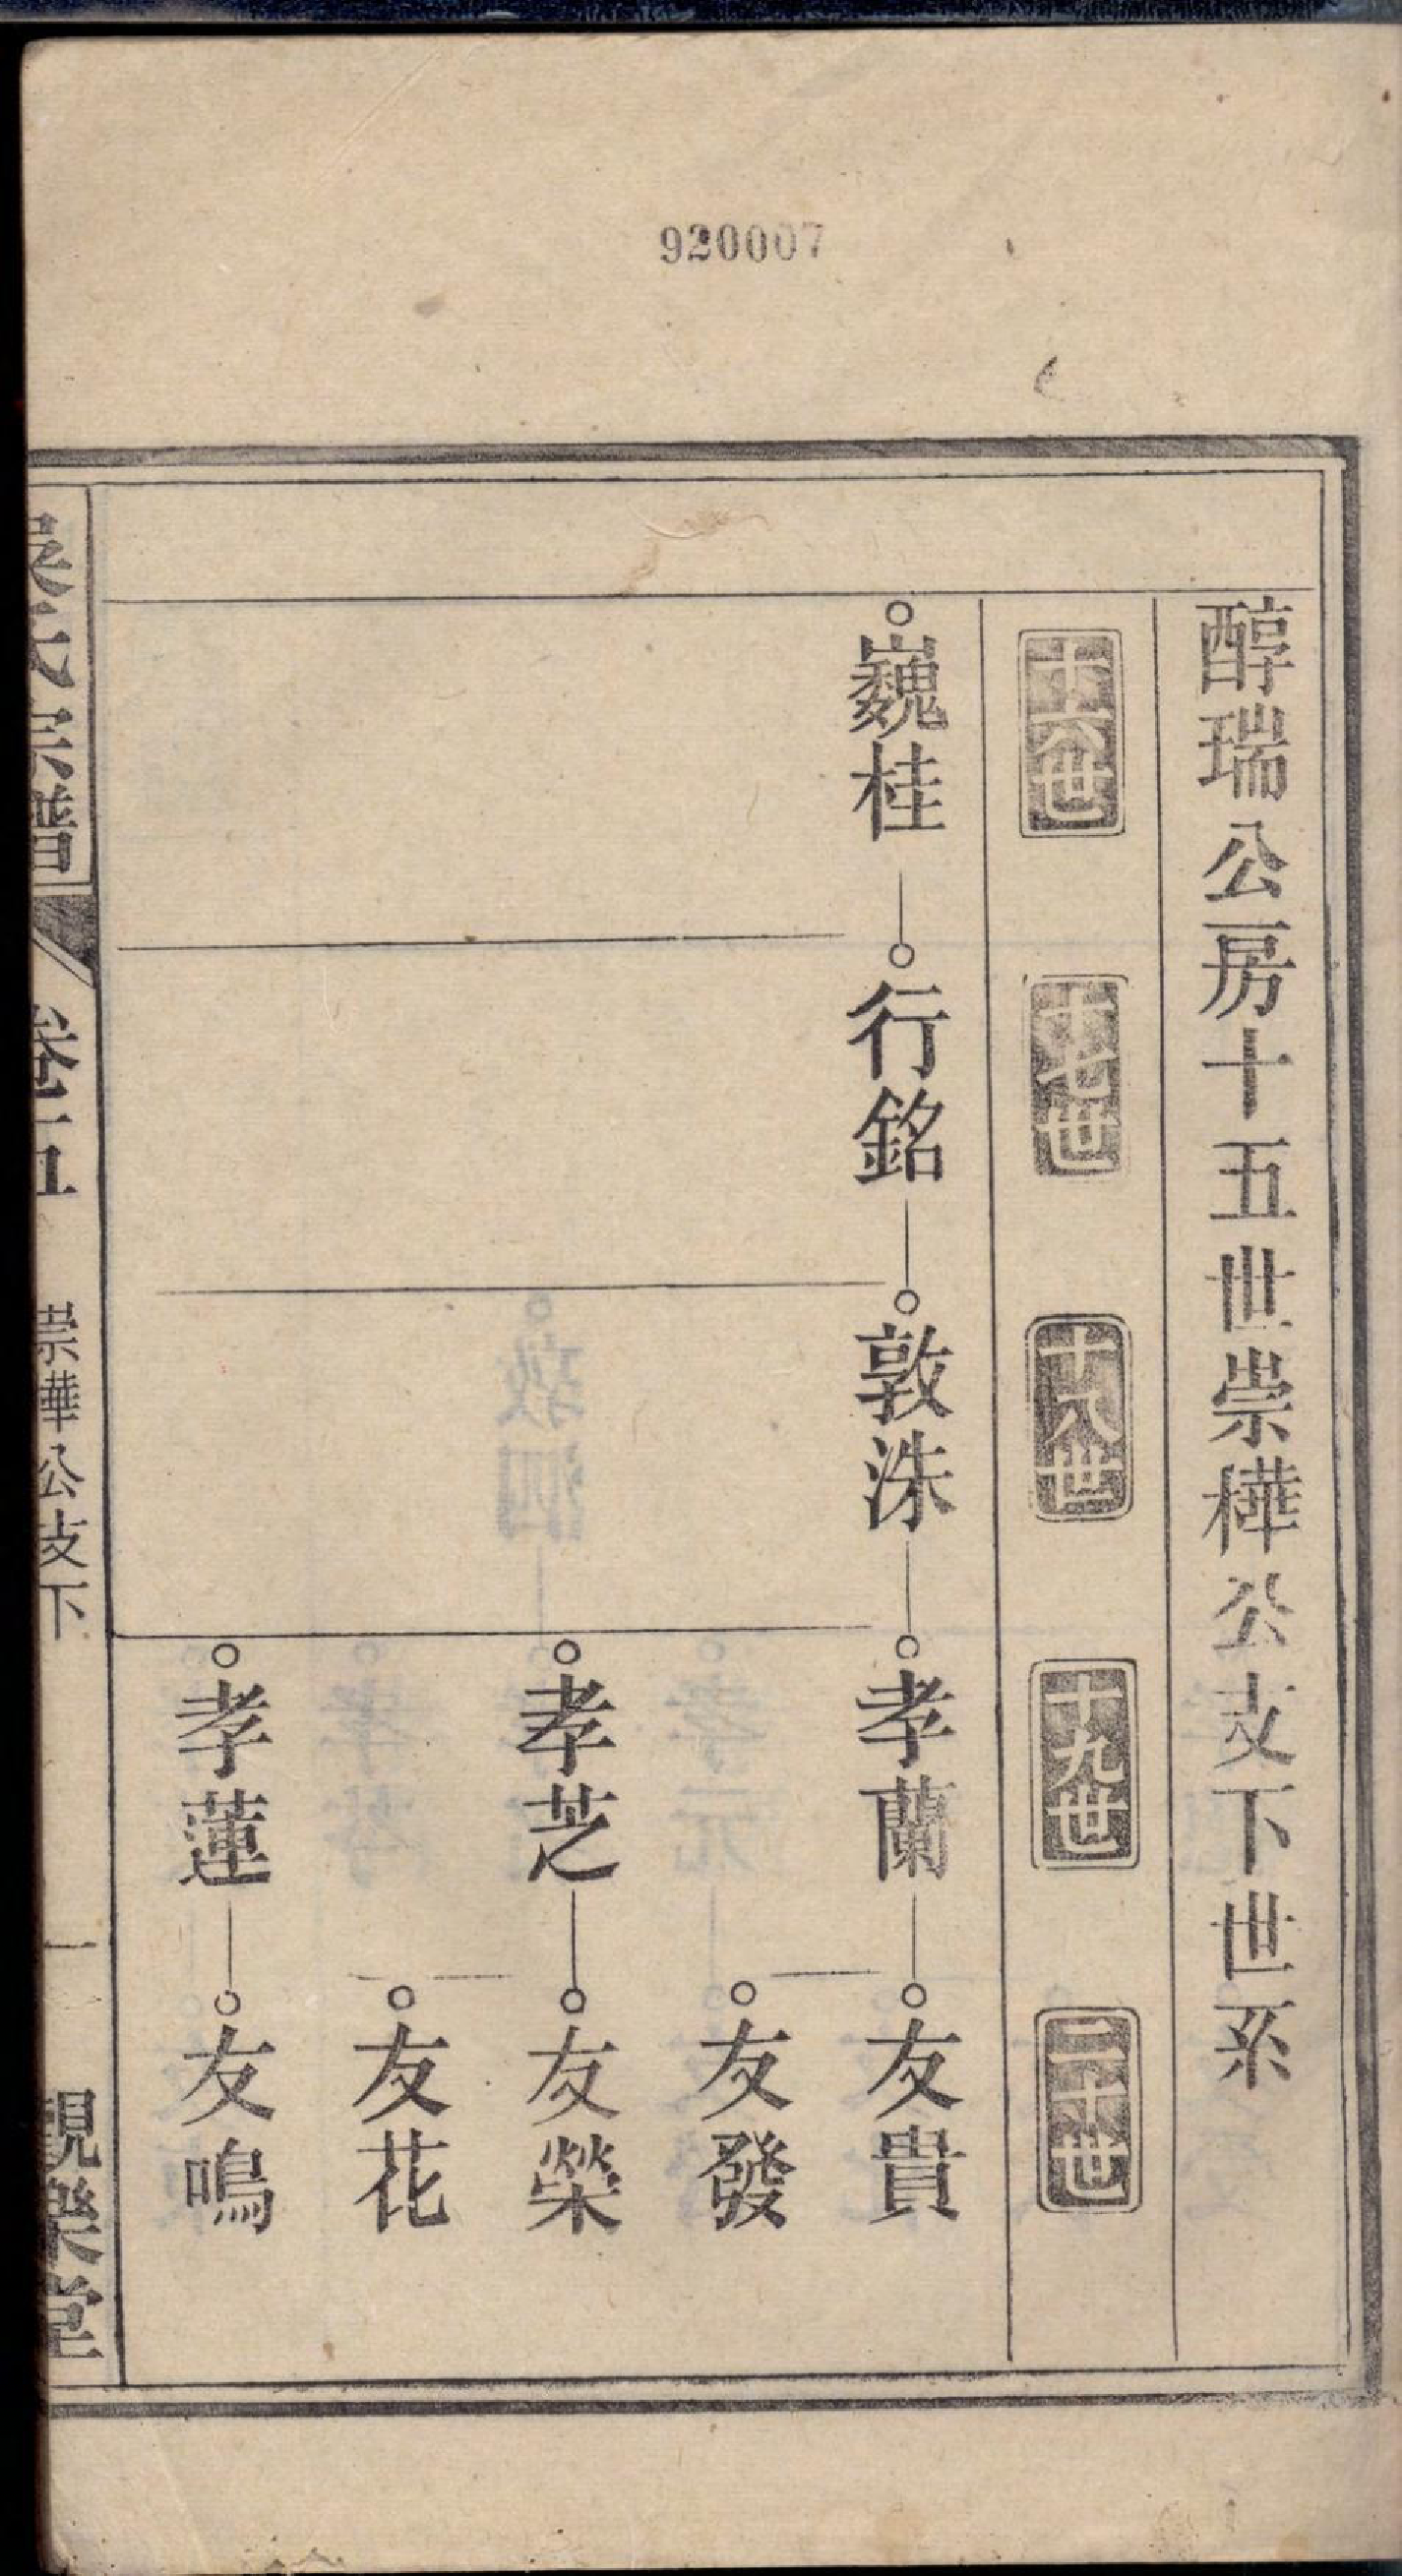 920007
醇瑞公房十五世崇樺公支下世系
十六世
十七世
十八世
十九世
二十世
巍桂
行銘
敦洙
孝蘭
友貴
友發
孝芝
友榮
友花
孝蓮
友鳴
吳氏宗譜
卷五
崇華公支下
一
親樂堂